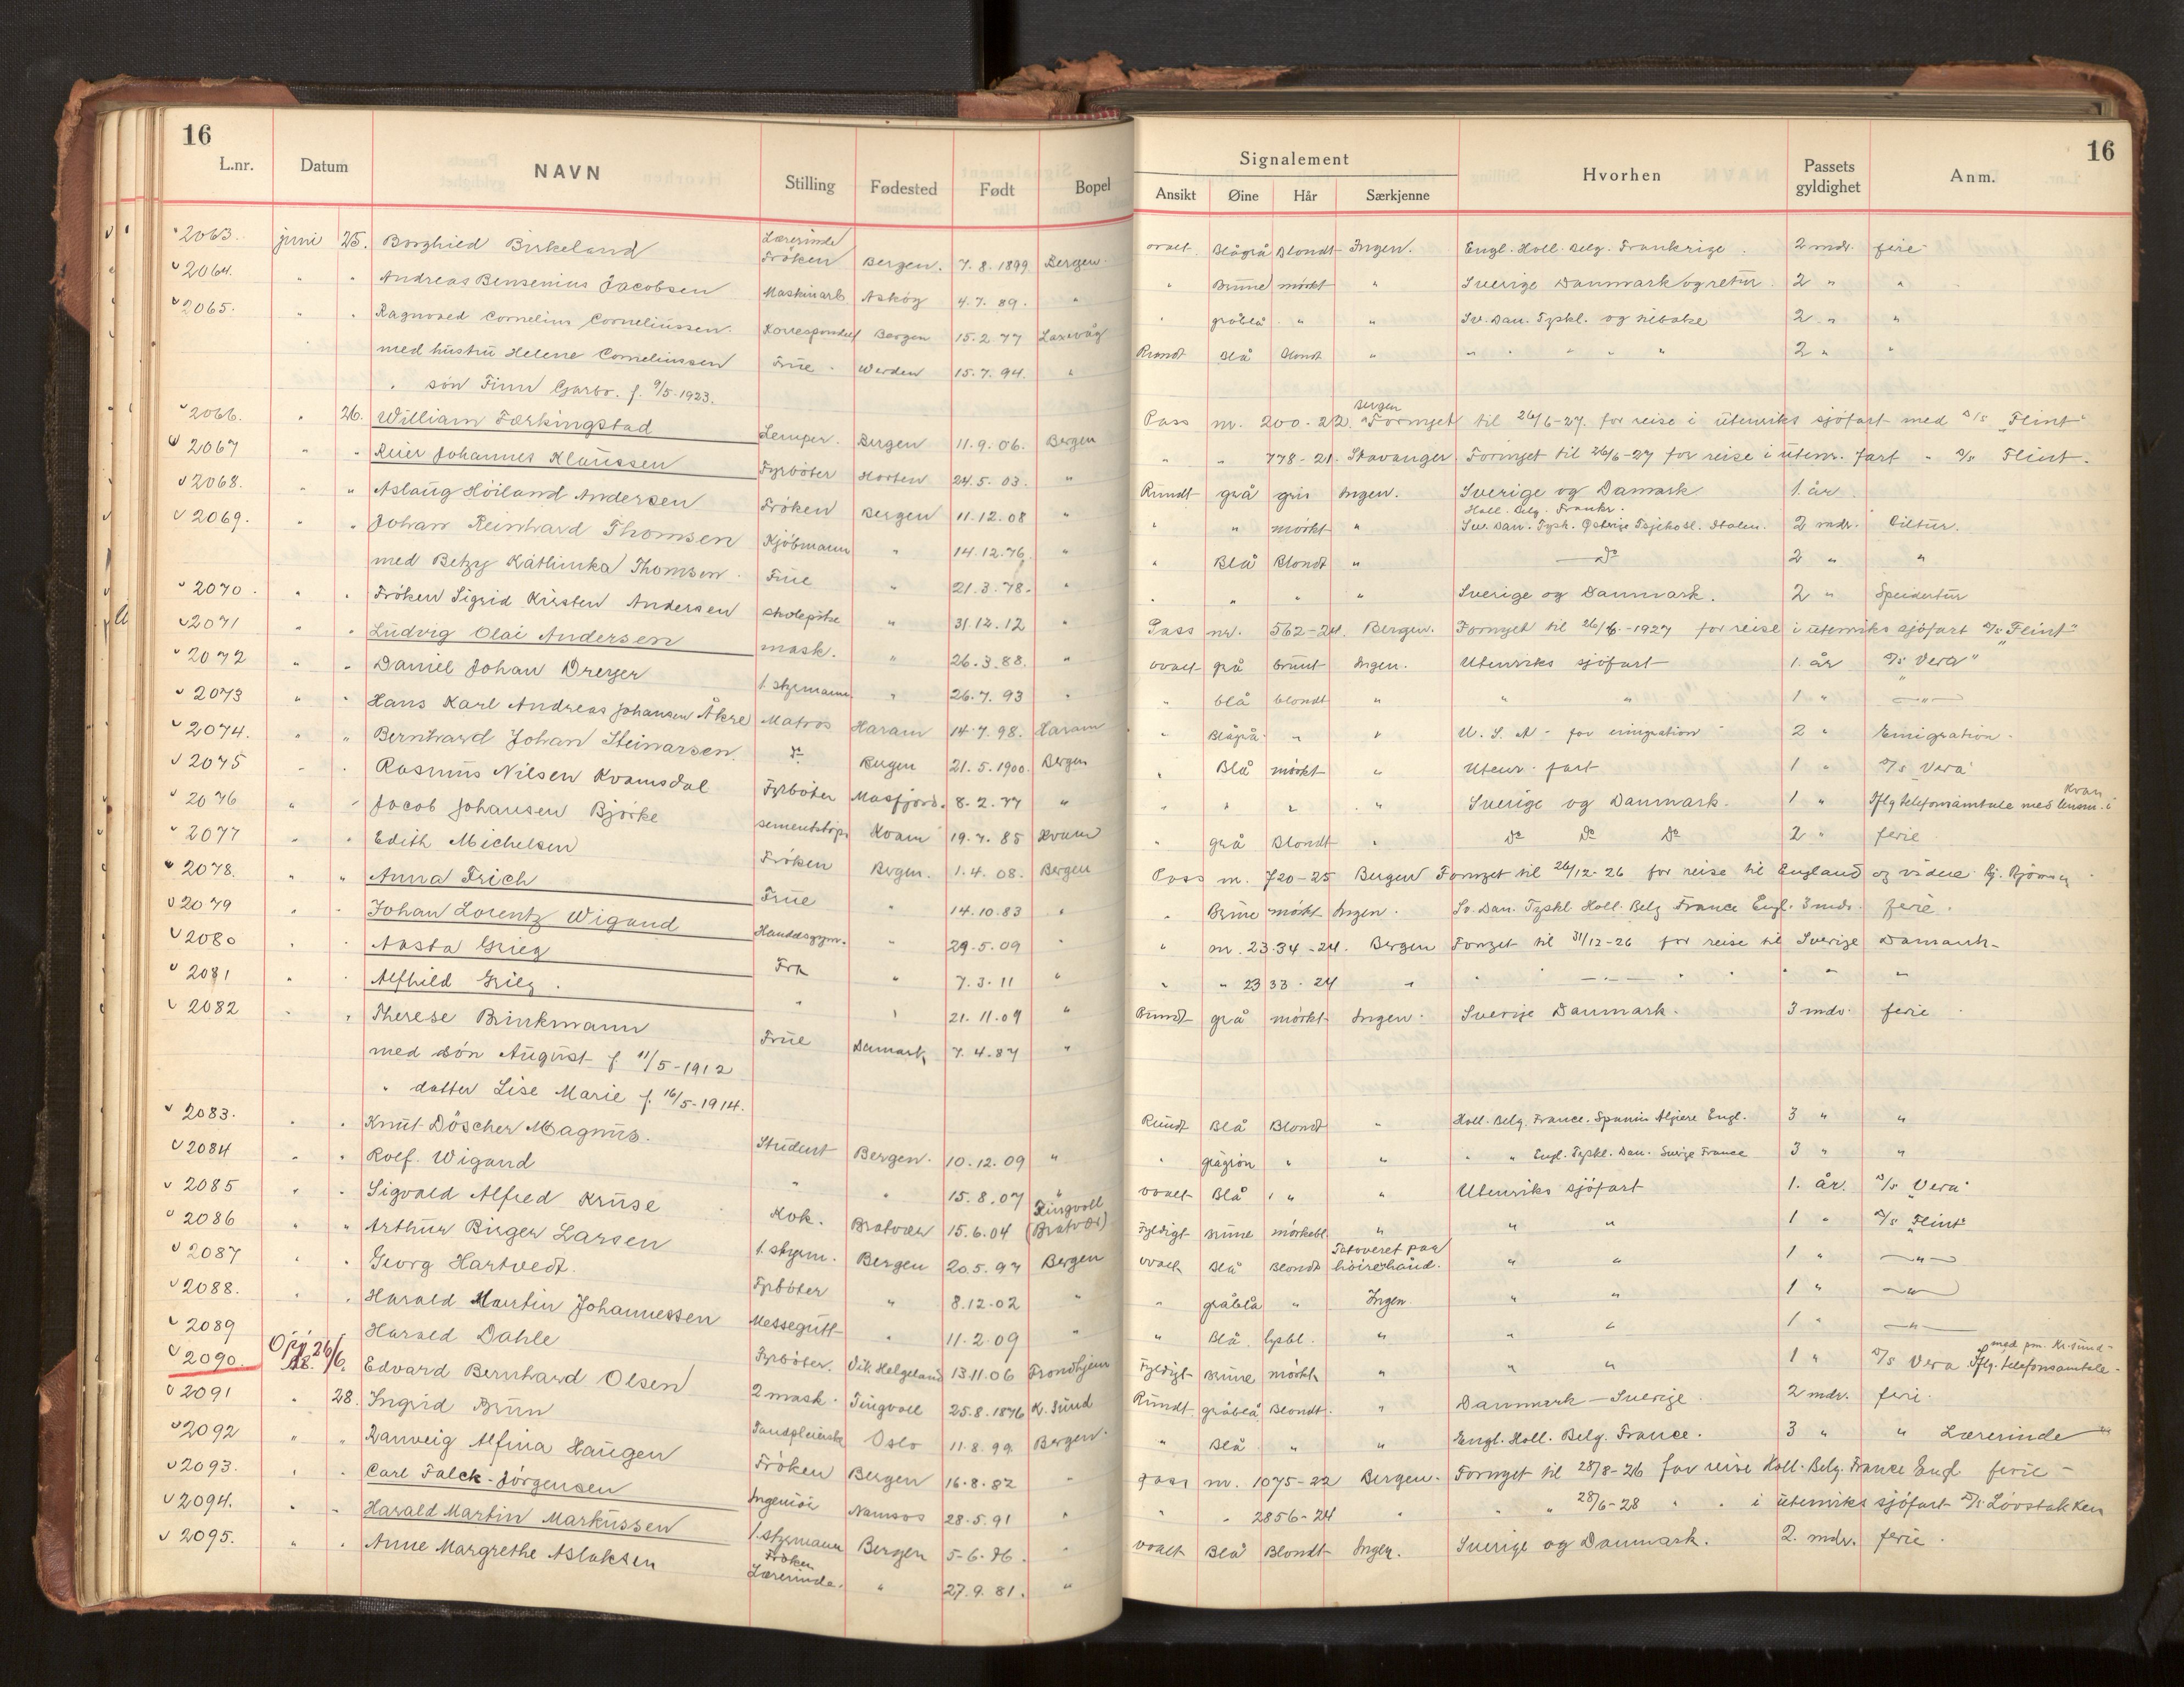 16
L.nr. Datum NAVN Stilling Fødested Født Bopel
2063. juni 25. Borghild Birkeland Lærerinde Fröken Bergen. 7.8.1899 Bergen
2064. " " Andreas Bensenius Jacobsen Maskinarb Asköy 4.7.89. "
2065. " " Ragnvald Cornelius Corneliussen. Korrespondent Bergen 15.2.77 Laxevåg
med hustru Helene Corneliussen Frue Werden 15.7.94. "
" sön Finn Garbo. f. 9/5-1923.
2066. " 26. William Færkingstad Lemper. Bergen 11.9.06. Bergen
2067 " " Reier Johannes Klaussen Fyrböter Horten 24.5.03. "
2068. " " Aslaug Höiland Andersen Fröken Bergen 11.12.08 "
2069. " Johan Reinhard Thomsen Kjöbmann " 14.12.76 "
med Betzy Kathinka Thomsen. Frue " 21.3.78. "
2070. " " Fröken Sigrid Kirsten Andersen skolepike " 31.12.12 "
2071 " " Ludvig Olai Andersen mask. " 26.3.88. "
2072 " " Daniel Johan Dreyer 1. styrmann. " 26.7.93 "
2073 " " Hans Karl Andreas Johansen Åkre Matros Haram 14.7.98. Haram
2074. " " Bernhard Johan Steinarsen. Do Bergen 21.5.1900. Bergen
2075 " " Rasmus Nilsen Kvamsdal Fyrböter Masfjord. 8.2.77 "
2076 " " Jacob Johansen Bjørke sementstöp. Kvam 19.7.85 Kvam
2077 " " Edith Michelsen Fröken Bergen. 1.4.08. Bergen
2078. " " Anna Frich Frue " 14.10.83 "
2079 " " Johan Lorentz Wigand Handelsgym. " 29.5.09 "
2080 " " Aasta Grieg Frk " 7.3.11 "
2081 " " Alfhild Grieg. " " 21.11.09 "
2082 " " Therese Brinkmann Frue Danmark 7.4.87 "
med sön August f. 11/5-1912
" datter Lise Marie f. 16/5-1914.
2083. " " Knut Döscher Magnus. Student Bergen. 10.12.09 "
2084 " " Rolf. Wigand " " 15.8.07 "
2085 " " Sigvald Alfred Kruse Kok. Bratvær 15.6.04 Tingvoll (Bratvær)
2086 " " Arthur Birger Larsen 1. styrm. Bergen 20.5.97 Bergen
2087 " " Georg Hartvedt. Fyrböter " 8.12.02 "
2088. " " Harald Martin Johannessen Messegutt " 11.2.09 "
2089 Harald Dahle Fyrböter. Vik Helgeland 13.11.06 Trondhjem
2090. 26/6. Edvard Bernhard Olsen 2 mask. Tingvoll 25.8.1876 K.sund
2091 " 28. Ingrid Brun Tandpleierske Oslo 11.8.99. Bergen.
2092 " " Ranveig Alfina Haugen Fröken Bergen 16.8.82 "
2093. " " Carl Falck-Jörgensen Ingeniör Namsos 28.5.91 "
2094. " " Harald Martin Markussen 1. styrmann Bergen 5-6.76. "
2095. " " Anne Margrethe Aslaksen Fröken Lærerinde. " 27.9.81. "
16
Signalement Hvorhen Passets gyldighet Anm.
Ansikt Øine Hår Særkjenne
ovalt. Blågrå Blondt Ingen. Engl. Holl. Belg. Frankrige. 2 mdr. ferie
" Brune mörkt " Sverige Danmark og retur. 2 " "
" gråblå " " Sv. Dan. Tyskl. og tilbake 2 " "
Rundt Blå Blondt " " " " " " 2 " "
Pass nr. 200-22. Bergen Fornyet til 26/6-27. for reise i utenriks sjöfart med D/S "Flint"
" " 778-21. Stavanger. Fornyet til 26/6-27 for reise i utenr. fart " D/S Flint.
Rundt grå gris Ingen. Sverige og Danmark 1. år
" " mörkt " Holl. Belg. Frankr. Sve. Dan. Tysk. Østerige Tsjekosl. Italien. 2 mdr.
" Blå Blondt " Do 2 " "
" " " " Sverige og Danmark. 2 " Speidertur
Pass nr. 562-24. Bergen. Fornyet til 26/6-1927 for reise i utenriks sjöfart D/S "Flint"
ovalt grå brunt Ingen. Utenriks sjöfart 1. år D/S "Vera"
" blå blondt " " " 1 " "
" Blågrå " " U. S. A - for emigration 2 " Emigration.
" Blå mörkt " Utenr. fart 1 " D/S "Vera"
" " " " Sverige og Danmark. 1 " Iflg telefonsamtale med lensm. i Kvam
" grå Blondt " Do Do Do 2 " ferie
Pass nr. 720-25 Bergen Fornyet til 26/12-26 for reise til England og videre
" Brune mörkt Ingen. Sv. Dan. Tyskl Holl. Belg France Engl. 3 mdr. ferie.
" nr. 2334-24. Bergen Fornyet til 31/12-26 for reise til Sverige Danmark
" " 2333-24 " " " "
Rundt grå mörkt Ingen. Sverige Danmark. 3 mdr. ferie
Rundt Blå Blondt " Holl. Belg. France. Spania Algiere Engl. 3 " "
" grågrön " " " " Engl. Tyskl. Dan. Sverige France 3 " "
ovalt Blå " " Utenriks sjöfart 1. år. D/S "Vera"
Fyldigt brune mörkebl. " " " 1 " D/S "Flint"
ovalt Blå Blondt Tatoveret paa höire hånd. " " 1 " "
" gråblå " Ingen " " 1 " "
" Blå. lysbl. " " " 1 " "
Fyldigt brune mörkt " " " 1 " D/S Vera Iflg. telefonsamtale med pm. Kr.sund
Rundt. gråblå Blondt. " Danmark - Sverige. 2 mdr. ferie.
" Blå " " Engl. Holl. Belg. France. 3 " " Lærerinde
Pass nr. 1075-22 Bergen. Fornyet til 28/8-26 for reise Holl. Belg. France Engl. ferie
" " 2856-24 " " " 28/6-28 " " i utenriks sjöfart D/S Lövstakken
ovalt Blå Blondt Ingen. Sverige og Danmark. 2. mdr. ferie.